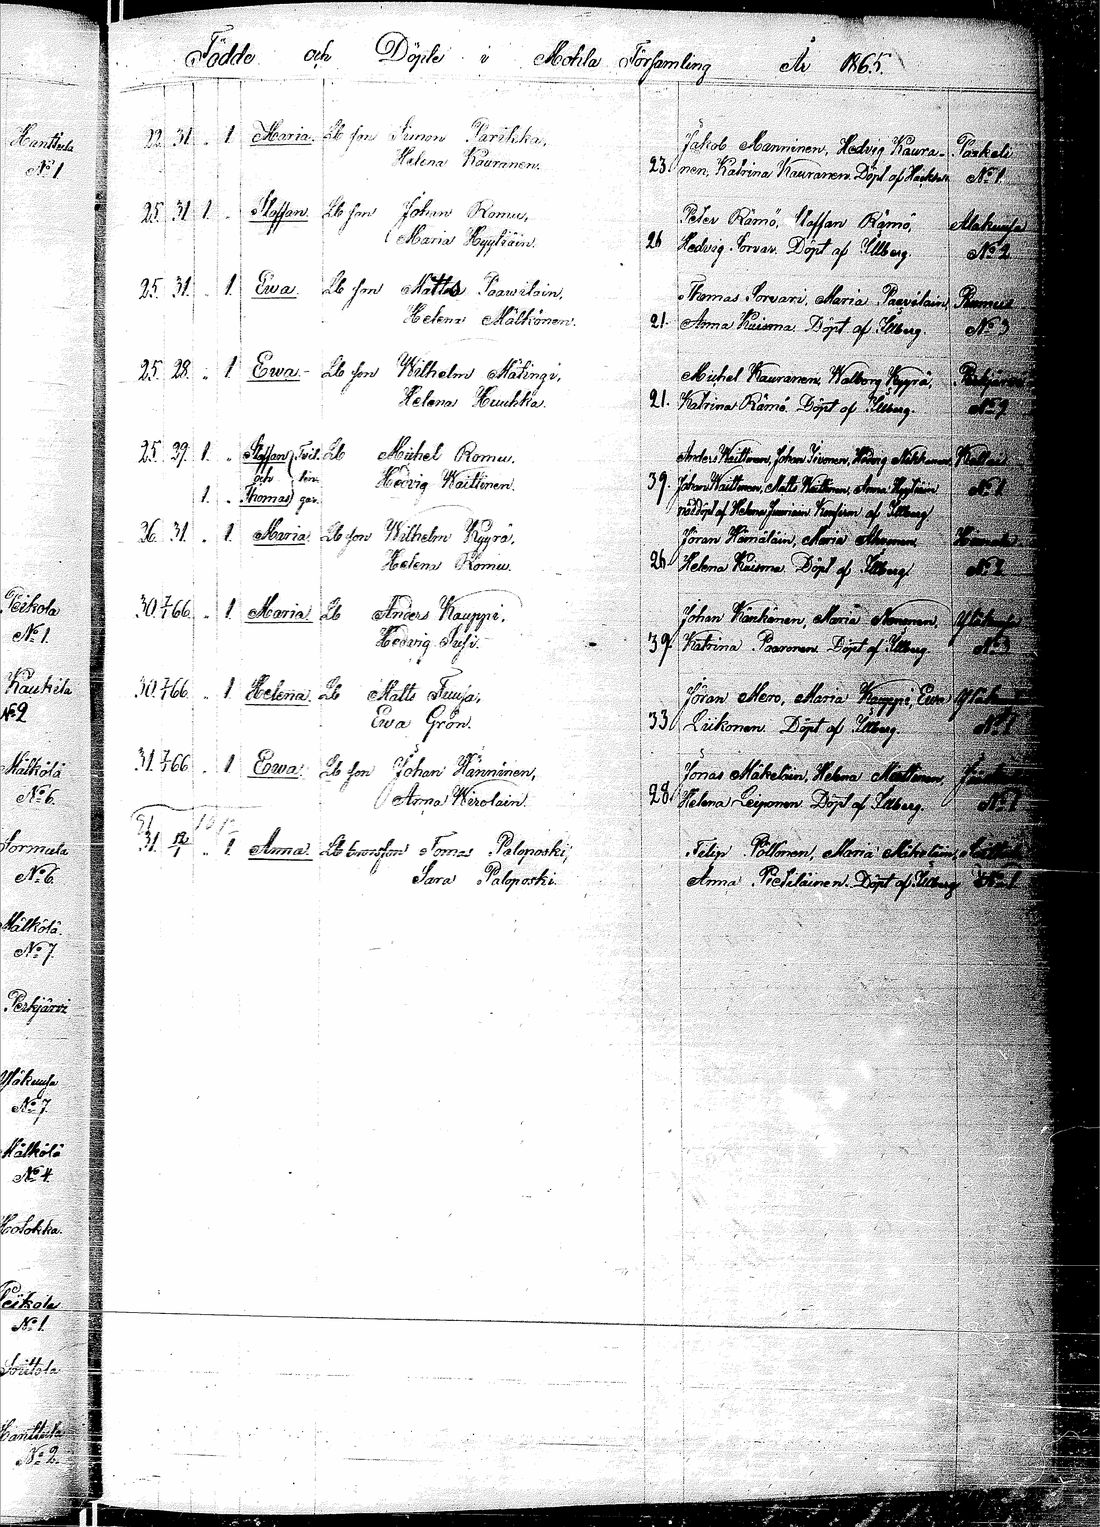 Födde och Döpte i Mohla Församling År 1865.
Hanttula
No 1
22. 31. „ 1. Maria. Lb son Simon Parikka,
Helena Kauranen.
23. Jakob Manninen, Hedvig Kaura-
nen, Katrina Kauranen. Döpt af
Parkeli
No 1.
25. 31. 1. „ Staffan. Lb son Johan Romu,
Maria Hyytiäin.
26 Peter Rämö, Staffan Rämö,
Hedvig Sorvar. Döpt af Illberg.
Alakuusa
No 2
25. 31. „ 1. Ewa Lb son Matts Paawilain,
Helena Mälkönen.
21. Thomas Sorvari, Maria Paavilain,
Anna Kuisma. Döpt af Illberg.
No 3
25. 28. „ 1. Ewa.- Lb son Wilhelm Mätingi,
Helena Huuhka.
21. Michel Kauranen, Walborg Kyyrä,
Katrina Rämö. Döpt af Illberg.
Perkjärvi
25. 29. 1. „ Staffan Twil- Lb Michel Romu.
och lin- Hedvig Kaittinen.
1. „ Thomas gar.
39. Anders Kaittinen, Johan Iivonen, Hedvig
Johan Kaittinen, Matts Kaittinen, Anna Hyytiäin
nöddöpt af Helena Konfirm. af Illberg
No 1
26. 31. „ 1. Maria. Lb son Wilhelm Kyyrä,
Helena Romu.
26. Jöran Hämäläin, Maria
Helena Kuisma. Döpt af Illberg.
No 2
Peikola
No 1.
30. 7/1 66. „ 1 Maria. Lb Anders Kauppi,
Hedvig Susi.
39. Johan Känkänen, Maria Nenonen,
Katrina Paaronen. Döpt af Illberg.
No 3
Kaukila
No 2
30. 7/1 66. „ 1 Helena. Lb Matts Tuuja,
Ewa Grön.
33. Jöran Mero, Maria Kauppi, Ewa
Liikonen. Döpt af Illberg.
Mälkölä
No 6.
31. 7/1 66. „ 1 Ewa. Lb son Johan Hänninen,
Anna Wirolain.
28. Jonas Mäkeläin, Helena Miettinen,
Helena Leiponen. Döpt af Illberg.
No 1
Sormula
No 6.
31. 12/1 „ 1 Anna. Lb Tomas Paloposki,
Sara Paloposki.
Filip Pöllonen, Maria Mikeläin,
Anna Pietiläinen. Döpt af Illberg
No 1
Mälkölä.
No 7.
Perkjärvi
Yläkuusa
No 7.
Mälkölä
No 4.
Hotokka.
Peikola
No 1.
Soittola
Hanttula
No 2.